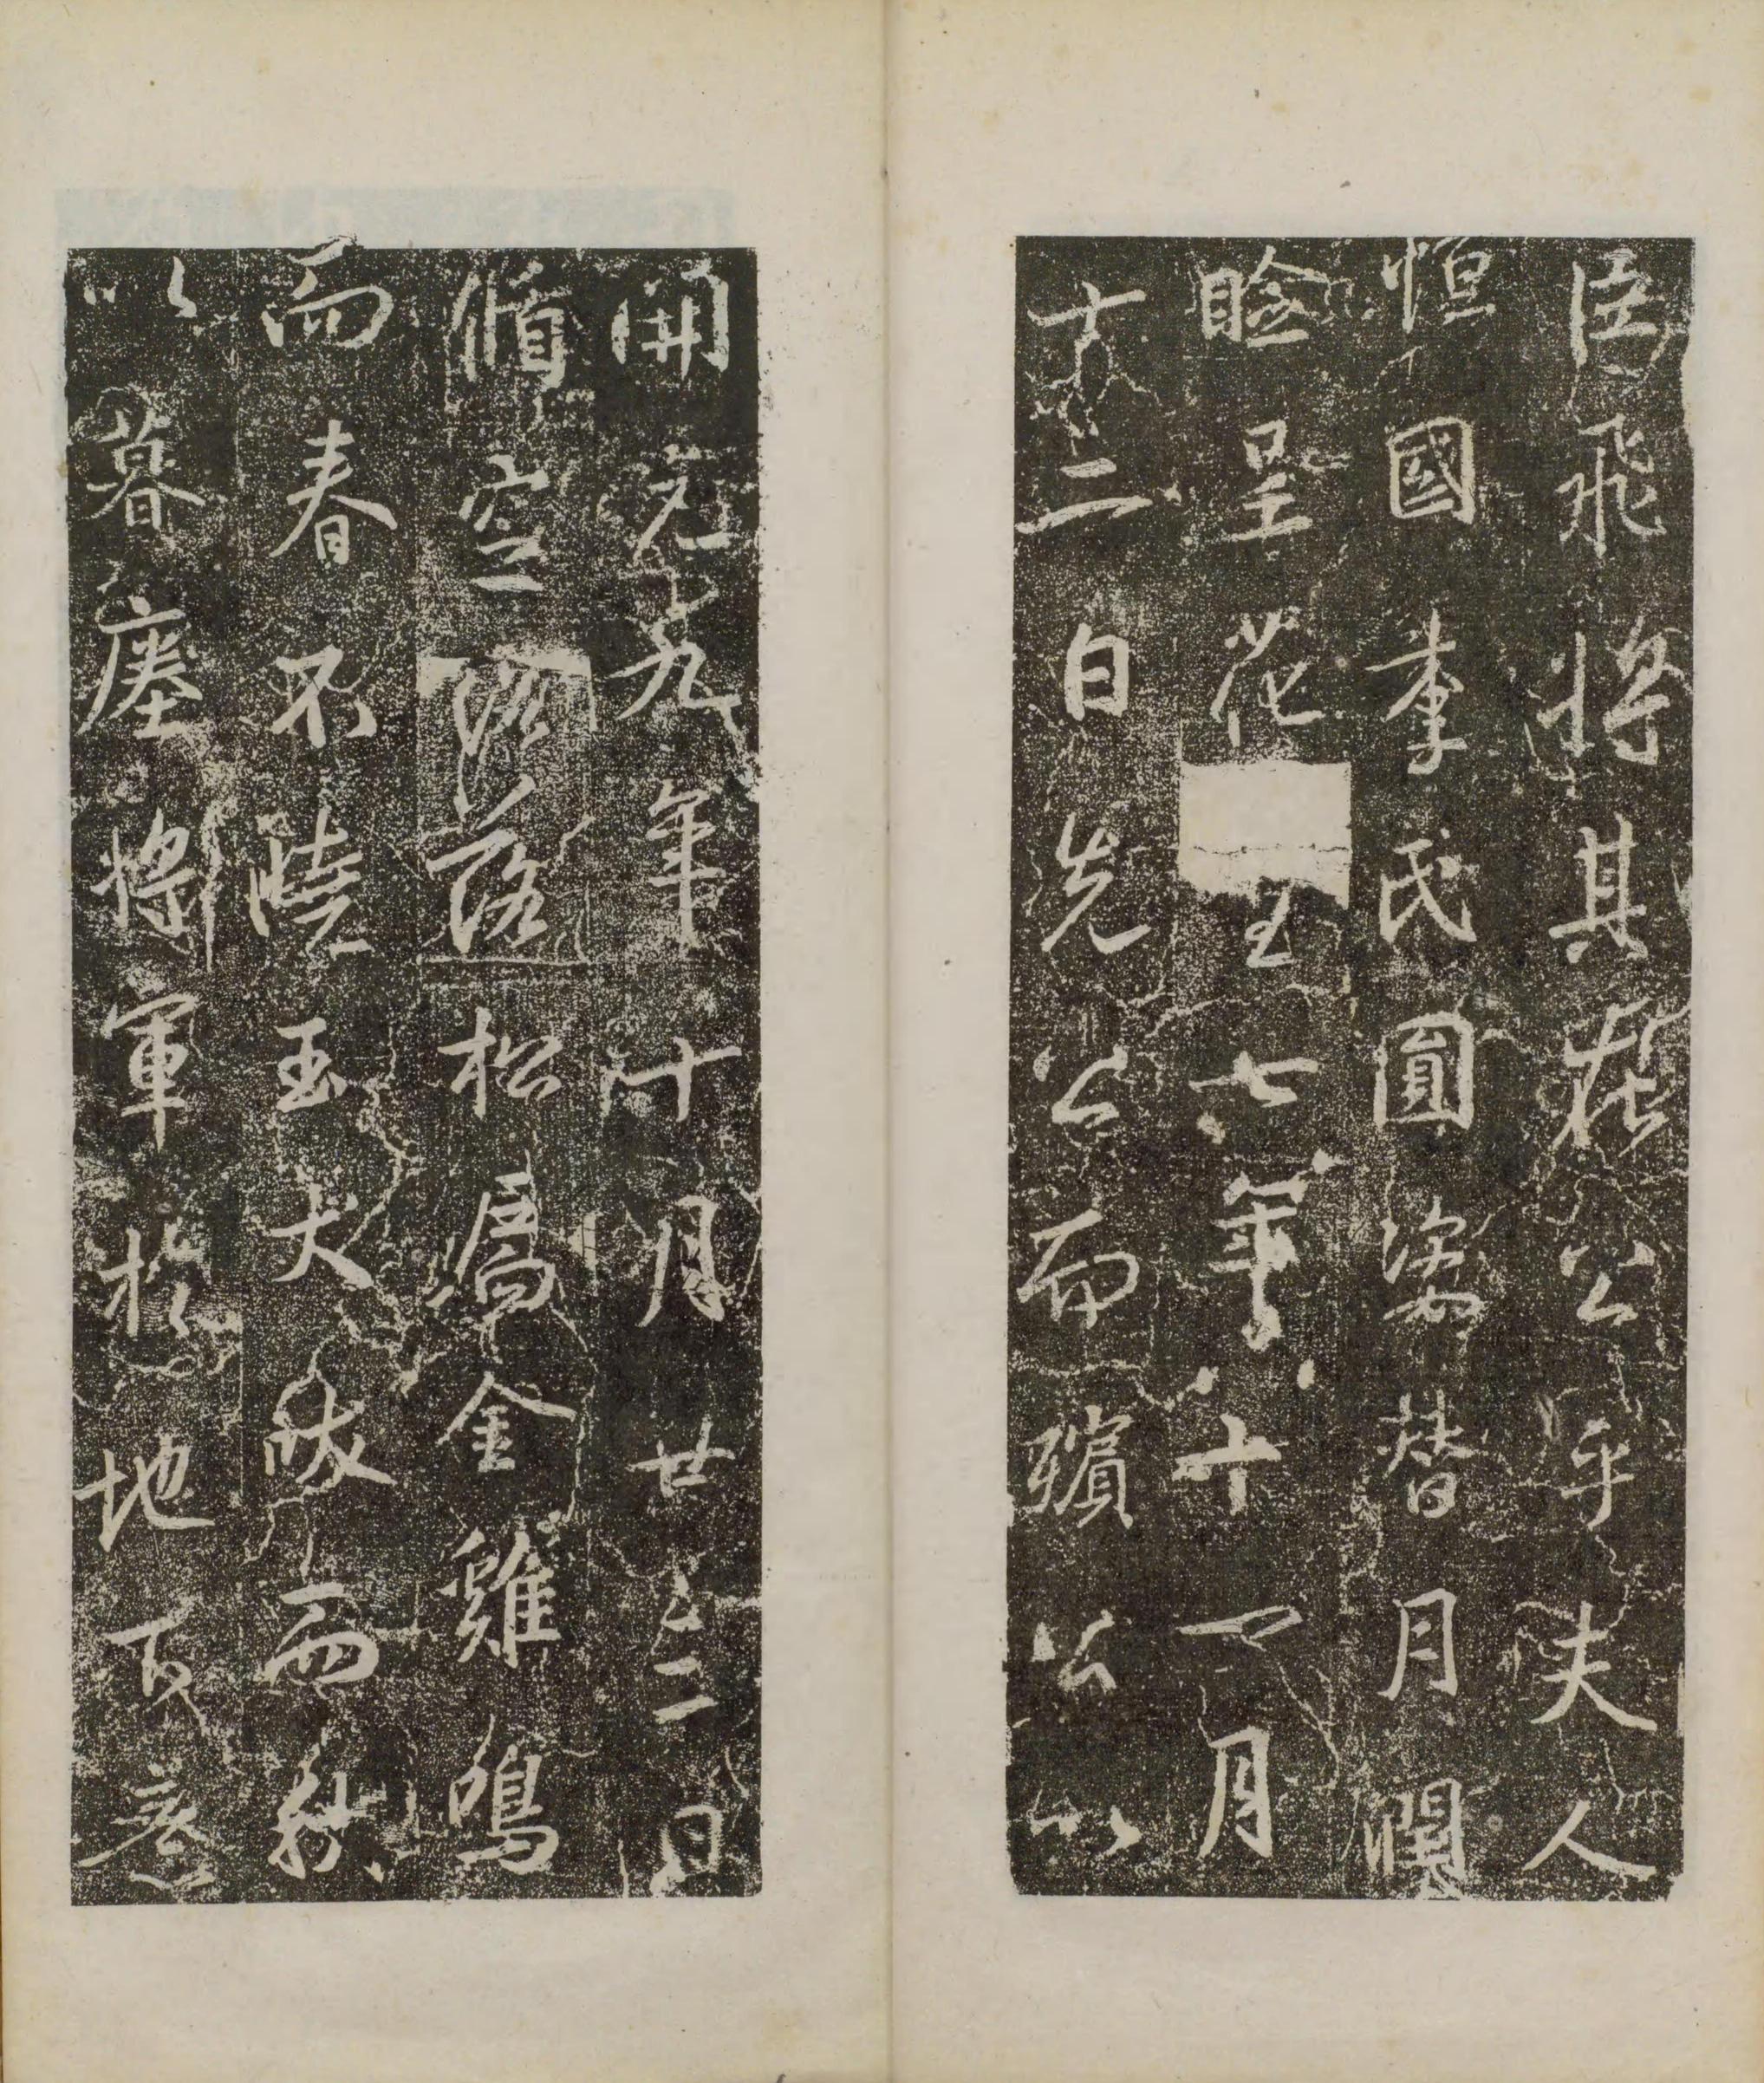 臣飛將其在公乎夫人
恒國李氏圓姿替月潤
臉呈花七年十一月
十二日先公而殯公以
開元九年十月廿三日
空落松扃金雞鳴
而春不曉玉犬吠而秋
以暮將軍於地下意